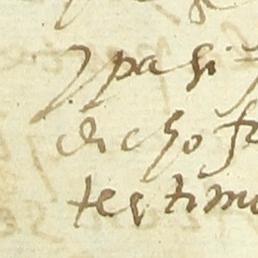 y pasi
dicho
testimo